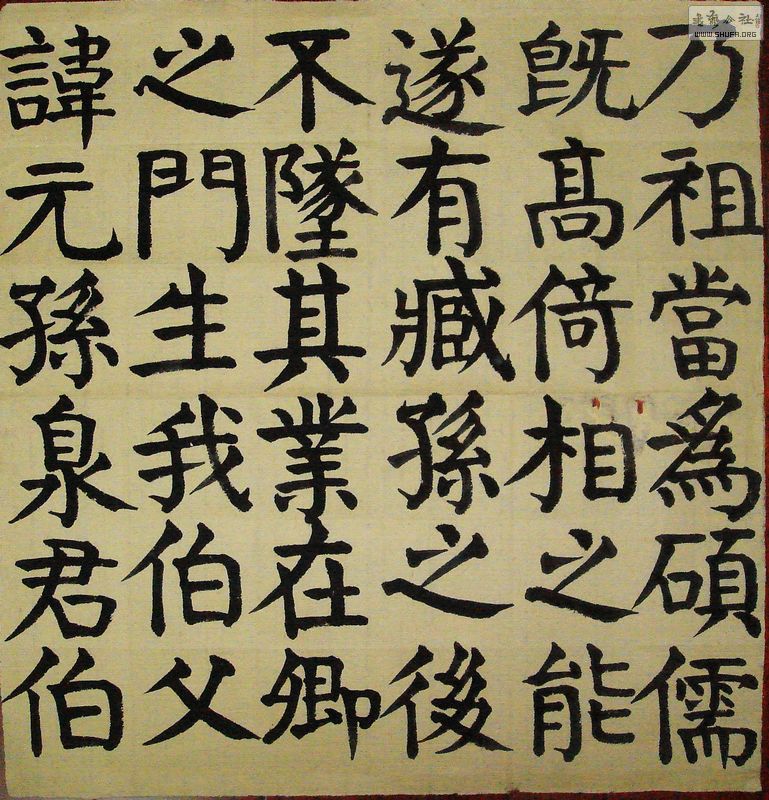 乃祖當爲碩儒
既髙倚相之能
遂有臧孫之後
不墜其業在卿
之門生我伯父
諱元孫泉君伯
WWW.SHUFA.ORG